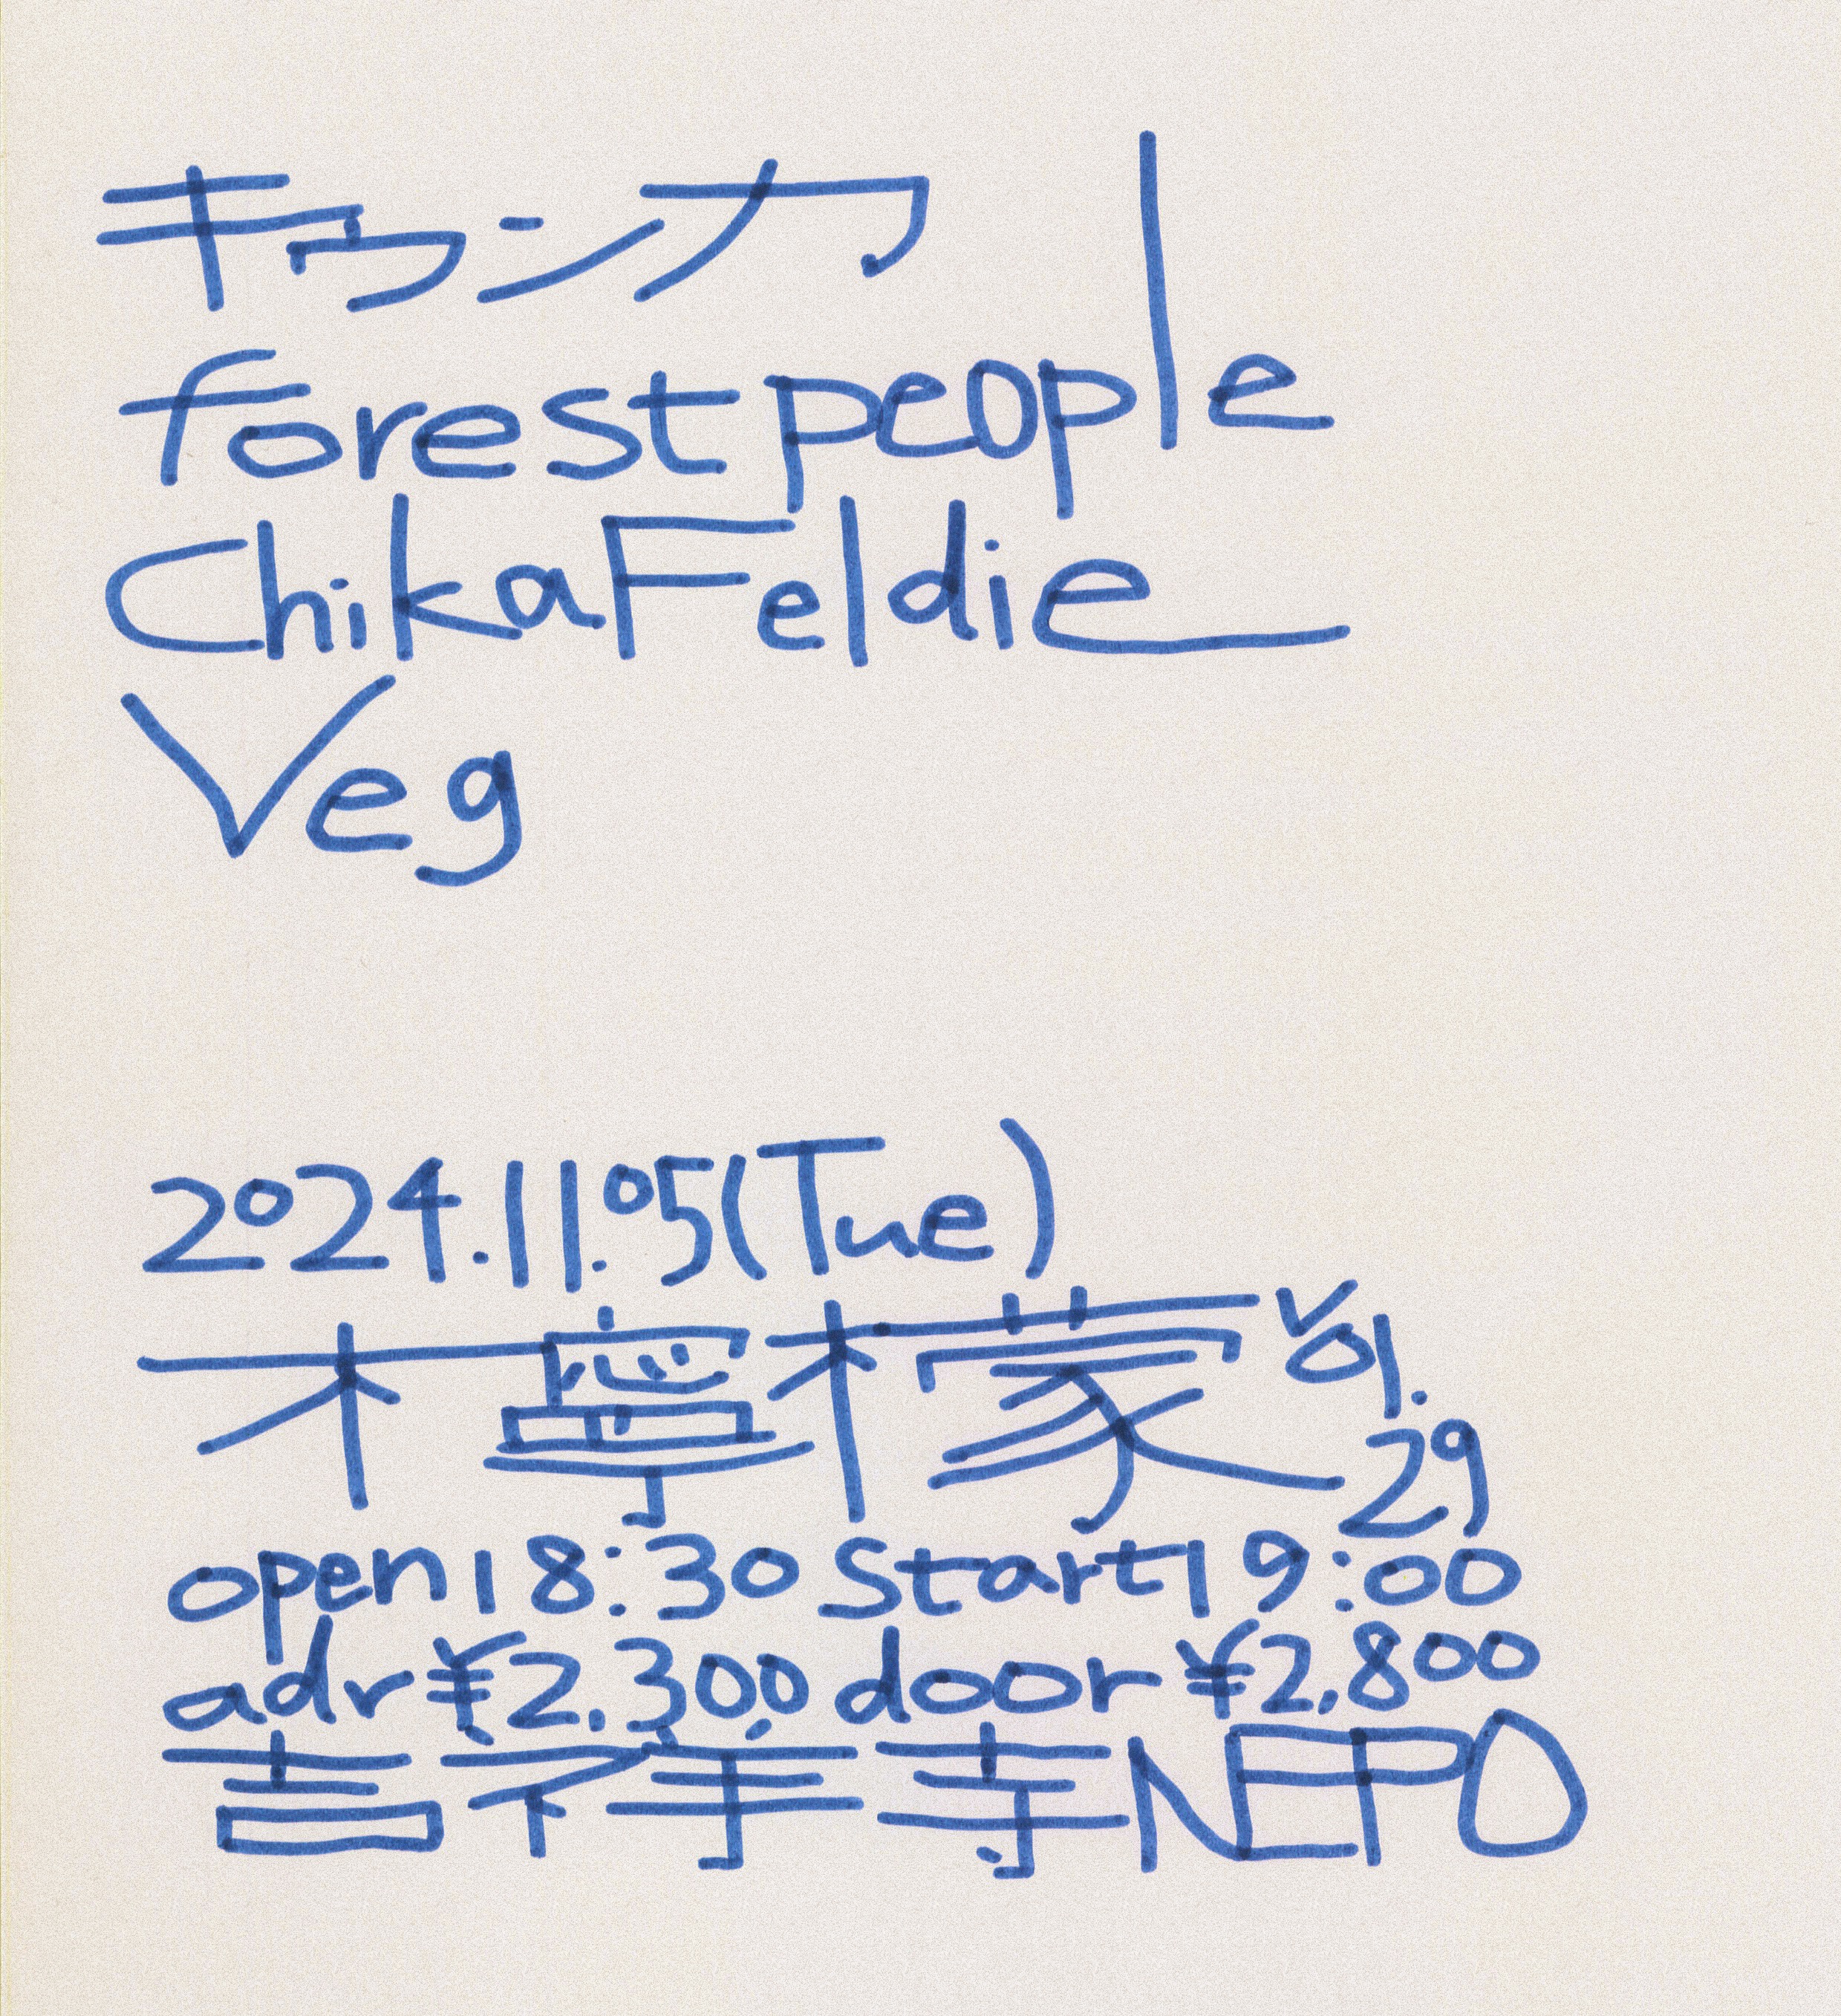 キウンカ
forest people
Chika Feldie
Veg
2024.11.05(Tue)
檸檬 Vol.29
open18:30 Start19:00
adv ¥2,300 door ¥2,800
吉祥寺NEPO